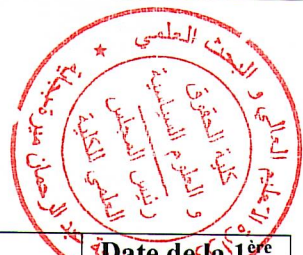 وزارة التعليم العالي و البحث العلمي
عبد الرحمان ميرة بجاية
كلية الحقوق
و العلوم السياسية
رئيس المجلس
العلمي للكلية
Date de la 1ère